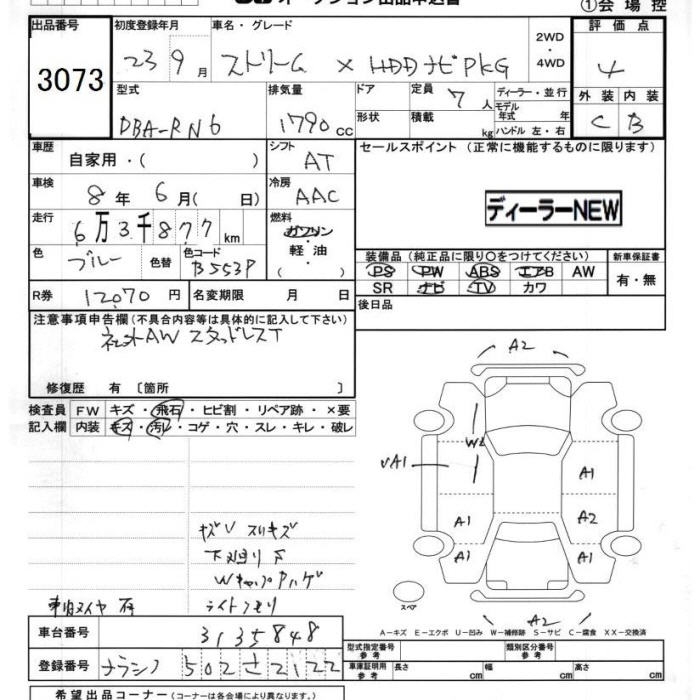 ①会場控
出品番号 初度登録年月 車名・グレード 2WD・4WD 評価点
3073 23 9月 ストリーム × HDDナビPKG 4
型式 排気量 ドア 定員 7人 ディーラー・並行 外装 内装
形状 積載 kg モデル年式 年 ハンドル 左・右
DBA-RN6 1790cc C B
車歴 自家用・( ) シフト AT セールスポイント (正常に機能するものに限ります)
車検 8年 6月( 日) 冷房 AAC
ディーラーNEW
走行 6万3千877km 燃料 ガソリン・軽油 ( )
色 ブルー 色替 色コード B553P 装備品 (純正品に限り○をつけてください) 新車保証書
PS PW ABS エアB AW 有・無
SR ナビ TV カワ
R券 12070円 名変期限 月 日 後日品
注意事項申告欄 (不具合内容等は具体的に記入して下さい)
AW スタッドレスT
修復歴 有 〔箇所 〕
検査員記入欄 FW キズ・飛石・ヒビ割・リペア跡・×要
内装 キズ・汚レ・コゲ・穴・スレ・キレ・破レ
A2
W2
A1 A1
A1 A2
A1 A1
キズU スリキズ
下廻りサ
Wキャップハゲ
ライトクモリ
スペア
A2
A-キズ E-エクボ U-凹み W-補修跡 S-サビ C-腐食 XX-交換済
車台番号 3135848
型式指定番号 参考 類別区分番号 参考
登録番号 ナラシノ 502 さ 2122
車庫証明用 参考 長さ 幅 高さ
希望出品コーナー (コーナーは各会場により異なります。)